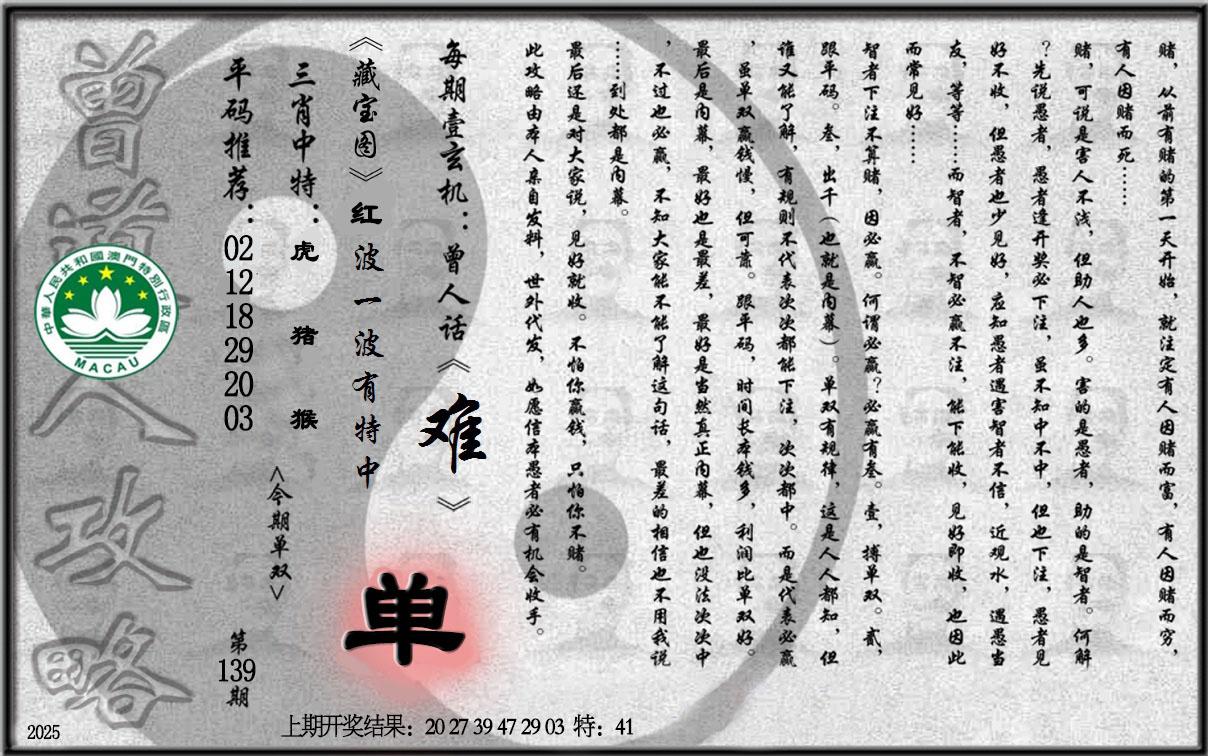 赌，从前有赌的第一天开始，就注定有人因赌而富，有人因赌而穷，
有人因赌而死……
赌，可说是害人不浅，但助人也多。害的是愚者，助的是智者。何解
？先说愚者，愚者逢开奖必下注，虽不知中不中，但也下注，愚者见
好不收，但愚者也少见好，应知愚者遇害智者不信，近观水，遇愚当
友，等等……而智者，不智必赢不注，能下能收，见好即收，也因此
而常见好……
智者下注不算赌，因必赢。何谓必赢？必赢有叁。壹，搏单双。贰，
跟平码。叁，出千（也就是内幕）。单双有规律，这是人人都知，但
谁又能了解，有规则不代表次次都能下注，次次都中。而是代表必赢
，虽单双赢钱慢，但可靠。跟平码，时间长本钱多，利润比单双好。
最后是内幕，最好也是最差，最好是当然真正内幕，但也没法次次中
，不过也必赢，不知大家能不能了解这句话，最差的相信也不用我说
……到处都是内幕。
最后还是对大家说，见好就收。不怕你赢钱，只怕你不赌。
此攻略由本人亲自发料，世外代发，如愿信本愚者必有机会收手。
每期壹玄机：曾人话《难》
《藏宝图》红波一波有特中
单
三肖中特：虎 猪 猴
<今期单双>
平码推荐：02 12 18 29 20 03
第139期
曾道人攻略
中華人民共和國澳門特別行政區
MACAU
2025
上期开奖结果：20 27 39 47 29 03 特：41